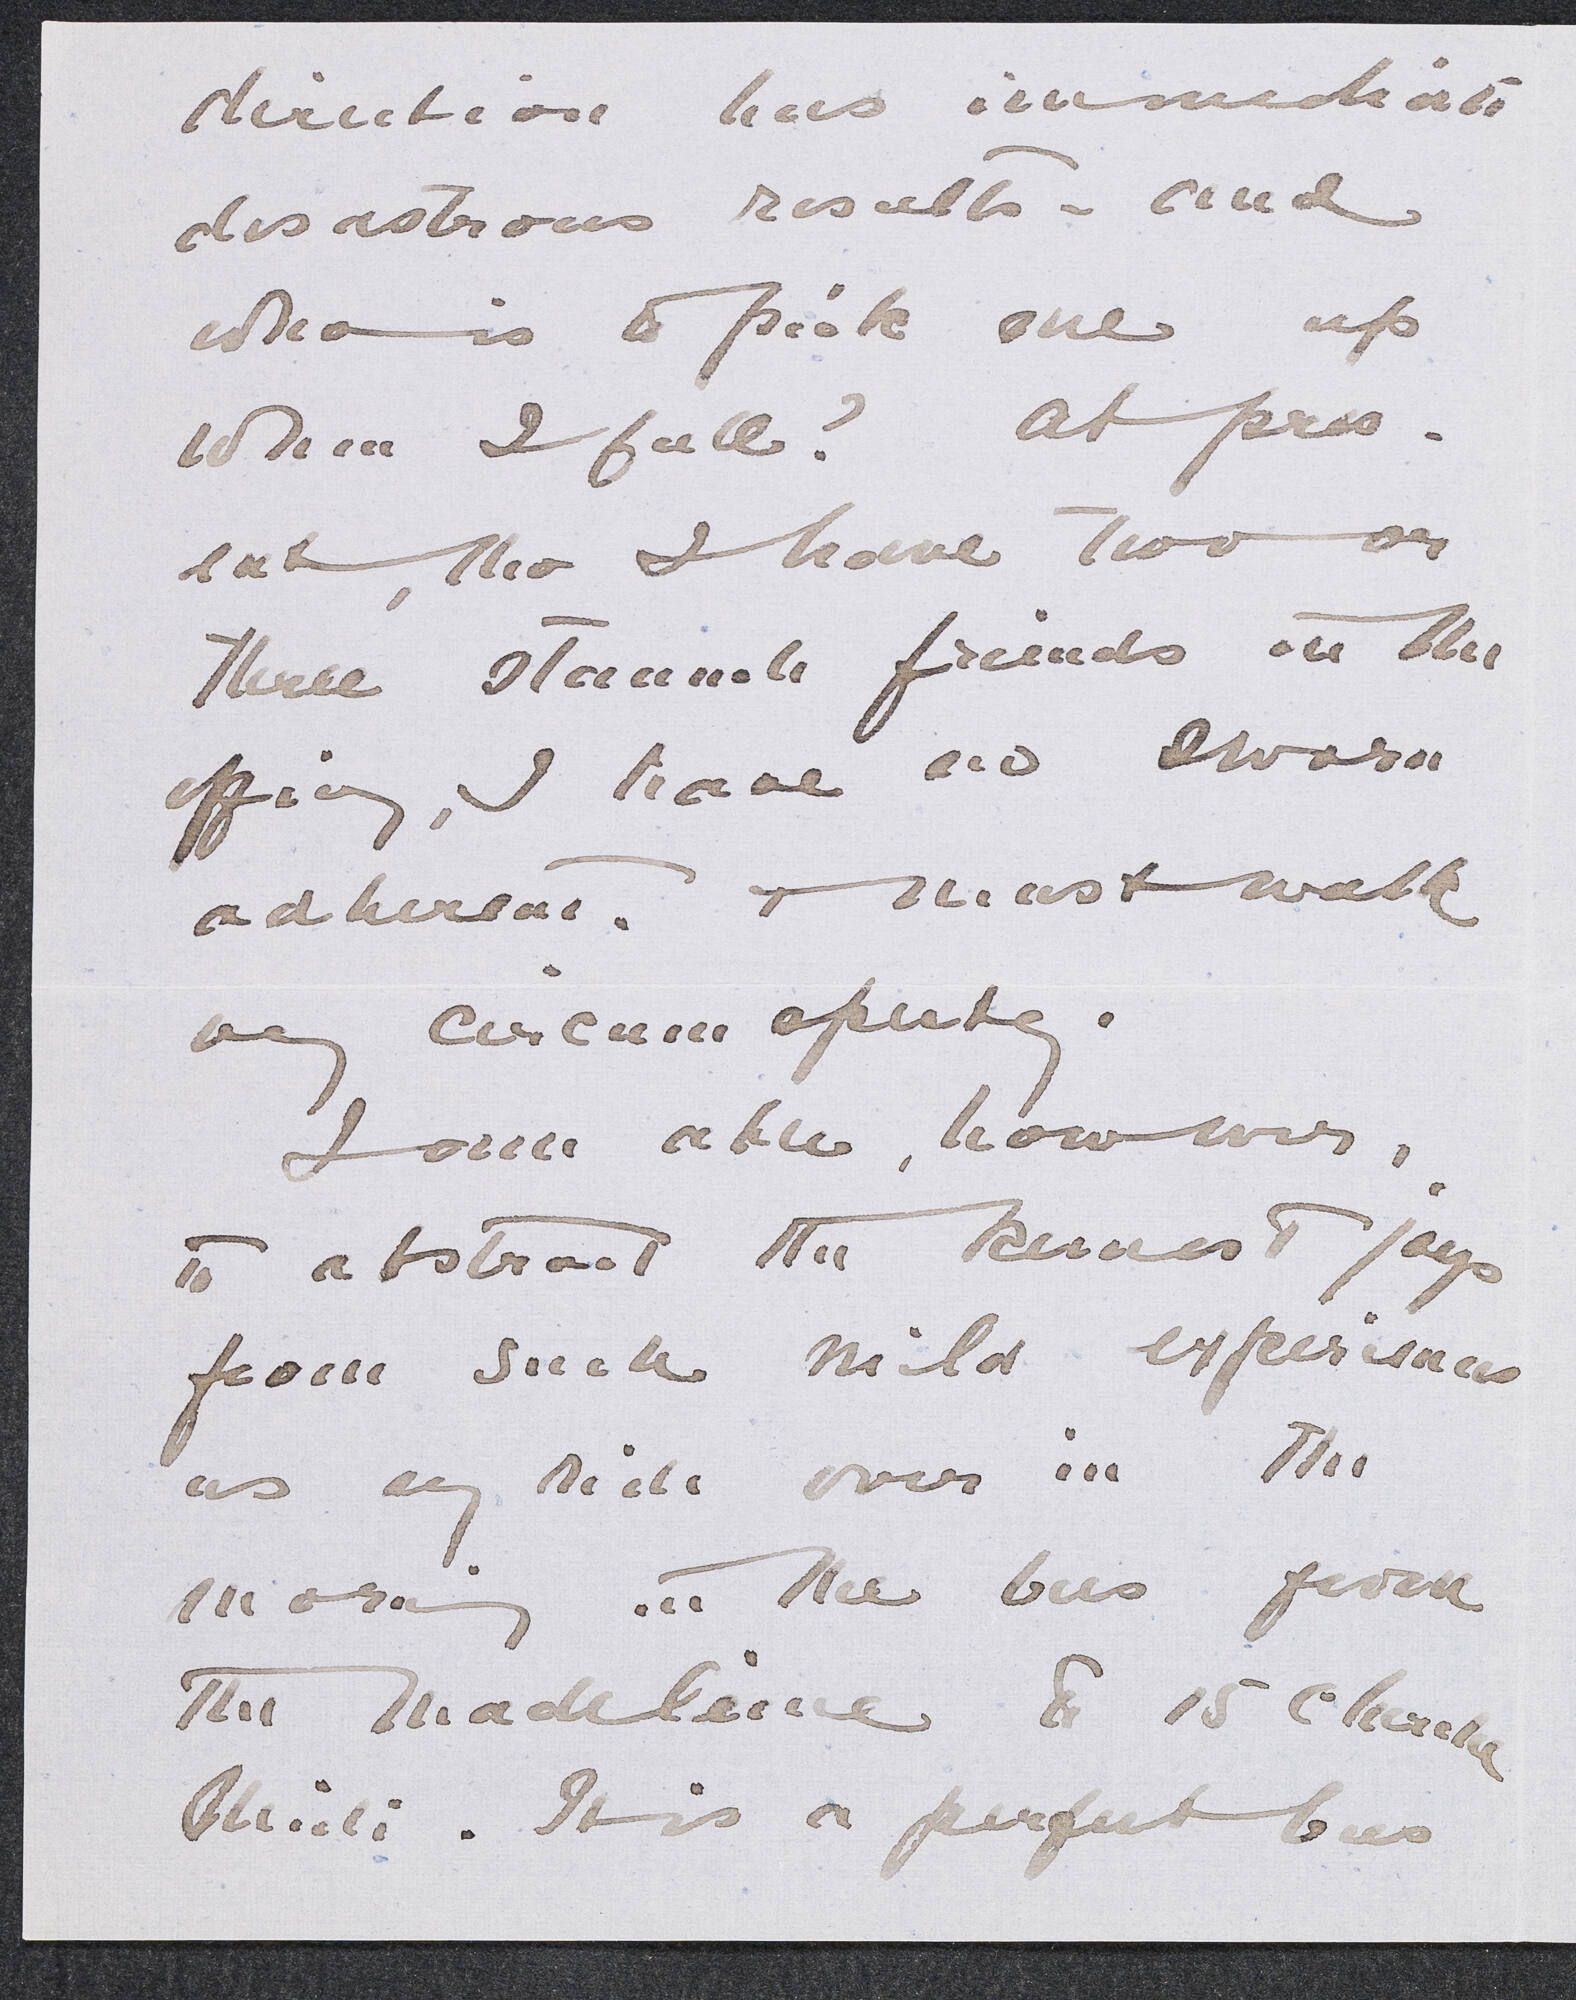 direction has immediate
disastrous results - and
who is to pick me up
when I fall? At pres-
ent, tho I have two or
three staunch friends in the
offing, I have no sworn
adherent. + must walk
very circumspectly.
I am able, however,
to abstract the keenest joys
from such mild experiences
as my ride over in the
morning in the bus from
the Madeleine to 15 Cherche
Midi. It is a perfect bus